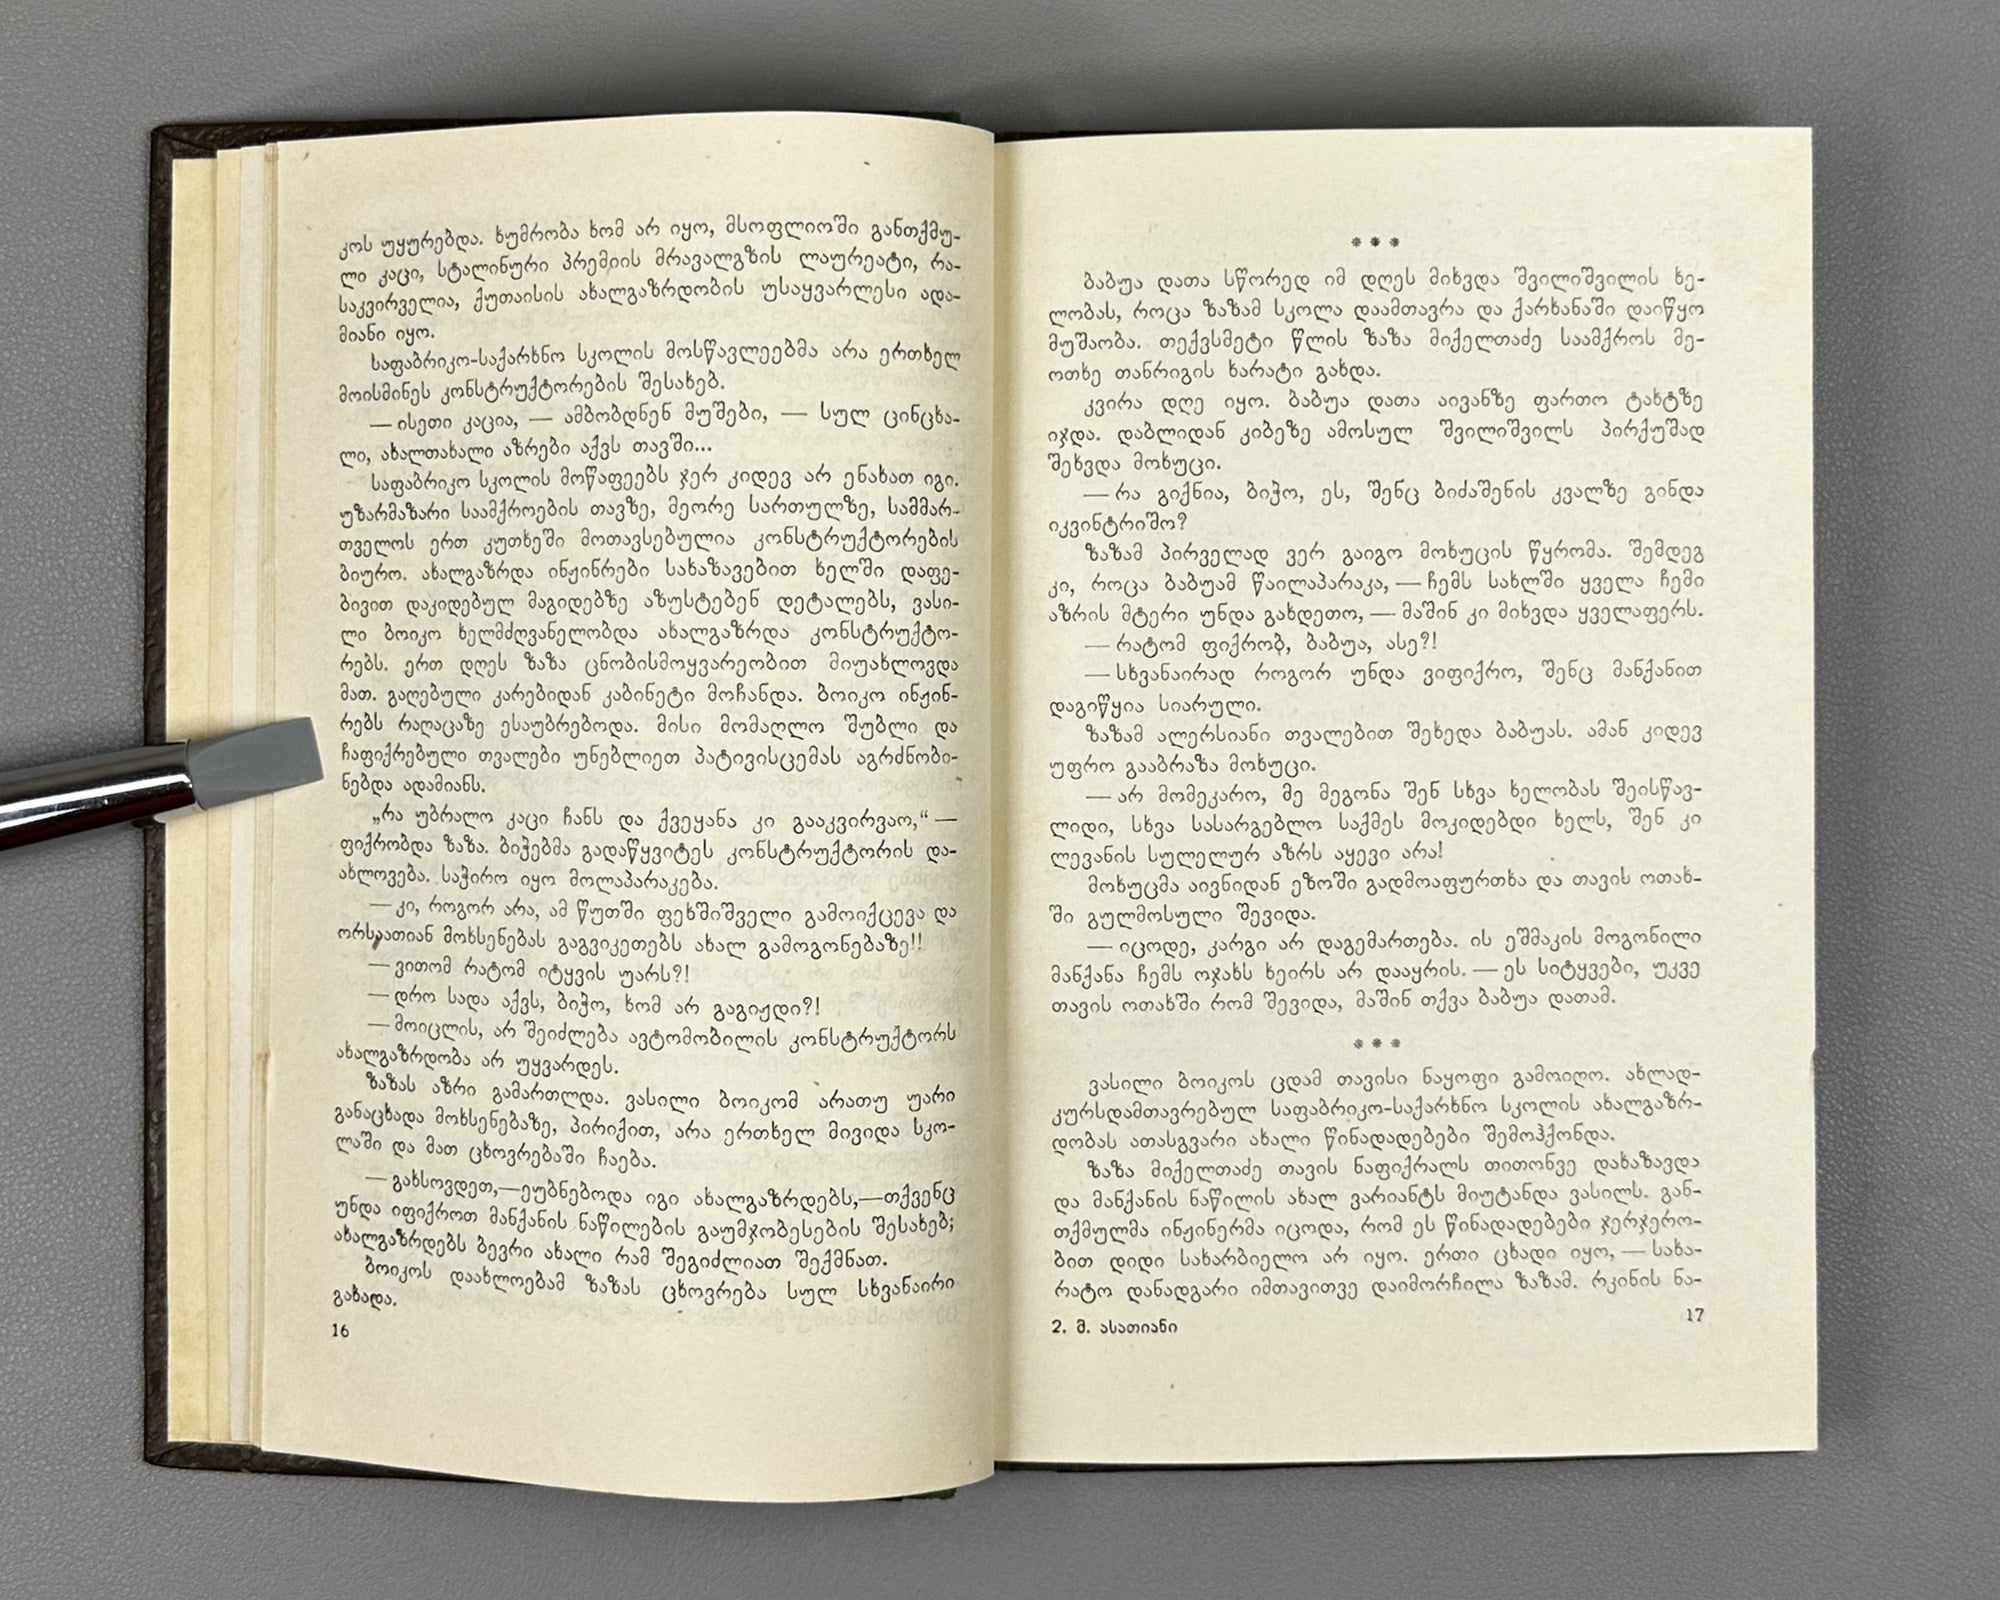 კოს უყურებდა. ხუმრობა ხომ არ იყო, მსოფლიოში განთქმუ-
ლი კაცი, სტალინური პრემიის მრავალგზის ლაურეატი, რა-
საკვირველია, ქუთაისის ახალგაზრდობის უსაყვარლესი ადა-
მიანი იყო.
საფაბრიკო-საქარხნო სკოლის მოსწავლეებმა არა ერთხელ
მოისმინეს კონსტრუქტორების შესახებ.
— ისეთი კაცია, — ამბობდნენ მუშები, — სულ ცინცხა-
ლი, ახალთახალი აზრები აქვს თავში...
საფაბრიკო სკოლის მოწაფეებს ჯერ კიდევ არ ენახათ იგი.
უზარმაზარი საამქროების თავზე, მეორე სართულზე, სამმარ-
თველოს ერთ კუთხეში მოთავსებულია კონსტრუქტორების
ბიურო. ახალგაზრდა ინჟინრები სახაზავებით ხელში დაფე-
ბივით დაკიდებულ მაგიდებზე აზუსტებენ დეტალებს, ვასი-
ლი ბოიკო ხელმძღვანელობდა ახალგაზრდა კონსტრუქტო-
რებს. ერთ დღეს ზაზა ცნობისმოყვარეობით მიუახლოვდა
მათ. გაღებული კარებიდან კაბინეტი მოჩანდა. ბოიკო ინჟინ-
რებს რაღაცაზე ესაუბრებოდა. მისი მომაღლო შუბლი და
ჩაფიქრებული თვალები უნებლიეთ პატივისცემას აგრძნობი-
ნებდა ადამიანს.
„რა უბრალო კაცი ჩანს და ქვეყანა კი გააკვირვაო,“ —
ფიქრობდა ზაზა. ბიჭებმა გადაწყვიტეს კონსტრუქტორის და-
ახლოვება. საჭირო იყო მოლაპარაკება.
— კი, როგორ არა, ამ წუთში ფეხშიშველი გამოიქცევა და
ორსაათიან მოხსენებას გაგვიკეთებს ახალ გამოგონებაზე!!
— ვითომ რატომ იტყვის უარს?!
— დრო სადა აქვს, ბიჭო, ხომ არ გაგიჟდი?!
— მოიცლის, არ შეიძლება ავტომობილის კონსტრუქტორს
ახალგაზრდობა არ უყვარდეს.
ზაზას აზრი გამართლდა. ვასილი ბოიკომ არათუ უარი
განაცხადა მოხსენებაზე, პირიქით, არა ერთხელ მივიდა სკო-
ლაში და მათ ცხოვრებაში ჩაება.
— გახსოვდეთ,—ეუბნებოდა იგი ახალგაზრდებს,—თქვენც
უნდა იფიქროთ მანქანის ნაწილების გაუმჯობესების შესახებ;
ახალგაზრდებს ბევრი ახალი რამ შეგიძლიათ შექმნათ.
ბოიკოს დაახლოებამ ზაზას ცხოვრება სულ სხვანაირი
გახადა.
16
* * *
ბაბუა დათა სწორედ იმ დღეს მიხვდა შვილიშვილის ხე-
ლობას, როცა ზაზამ სკოლა დაამთავრა და ქარხანაში დაიწყო
მუშაობა. თექვსმეტი წლის ზაზა მიქელთაძე საამქროს მე-
ოთხე თანრიგის ხარატი გახდა.
კვირა დღე იყო. ბაბუა დათა აივანზე ფართო ტახტზე
იჯდა. დაბლიდან კიბეზე ამოსულ შვილიშვილს პირქუშად
შეხვდა მოხუცი.
— რა გიქნია, ბიჭო, ეს, შენც ბიძაშენის კვალზე გინდა
იკვინტრიშო?
ზაზამ პირველად ვერ გაიგო მოხუცის წყრომა. შემდეგ
კი, როცა ბაბუამ წაილაპარაკა, — ჩემს სახლში ყველა ჩემი
აზრის მტერი უნდა გახდეთო, — მაშინ კი მიხვდა ყველაფერს.
— რატომ ფიქრობ, ბაბუა, ასე?!
— სხვანაირად როგორ უნდა ვიფიქრო, შენც მანქანით
დაგიწყია სიარული.
ზაზამ ალერსიანი თვალებით შეხედა ბაბუას. ამან კიდევ
უფრო გააბრაზა მოხუცი.
— არ მომეკარო, მე მეგონა შენ სხვა ხელობას შეისწავ-
ლიდი, სხვა სასარგებლო საქმეს მოკიდებდი ხელს, შენ კი
ლევანის სულელურ აზრს აყევი არა!
მოხუცმა აივნიდან ეზოში გადმოაფურთხა და თავის ოთახ-
ში გულმოსული შევიდა.
— იცოდე, კარგი არ დაგემართება. ის ეშმაკის მოგონილი
მანქანა ჩემს ოჯახს ხეირს არ დააყრის. — ეს სიტყვები, უკვე
თავის ოთახში რომ შევიდა, მაშინ თქვა ბაბუა დათამ.
* * *
ვასილი ბოიკოს ცდამ თავისი ნაყოფი გამოიღო. ახლად-
კურსდამთავრებულ საფაბრიკო-საქარხნო სკოლის ახალგაზრ-
დობას ათასგვარი ახალი წინადადებები შემოჰქონდა.
ზაზა მიქელთაძე თავის ნაფიქრალს თითონვე დახაზავდა
და მანქანის ნაწილის ახალ ვარიანტს მიუტანდა ვასილს. გან-
თქმულმა ინჟინერმა იცოდა, რომ ეს წინადადებები ჯერჯერო-
ბით დიდი სახარბიელო არ იყო. ერთი ცხადი იყო, — სახა-
რატო დანადგარი იმთავითვე დაიმორჩილა ზაზამ. რკინის ნა-
2. მ. ასათიანი
17